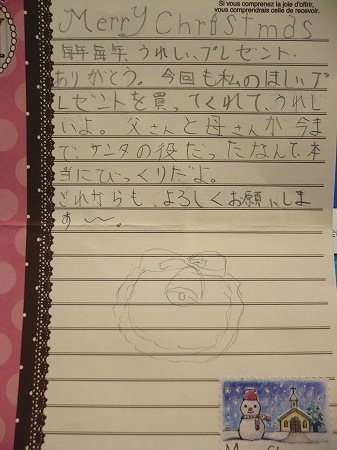 Si vous comprenez la joie d'offrir,
vous comprendrez celle de recevoir.
Merry Christmas
毎年毎年、うれしい、プレゼント、
ありがとう。今回も私のほしいプ
レゼントを買ってくれて、うれし
いよ。父さんと母さんが今ま
で、サンタの役だったなんて、本
当にびっくりだよ。
これからも、よろしくお願いしま
す〜。